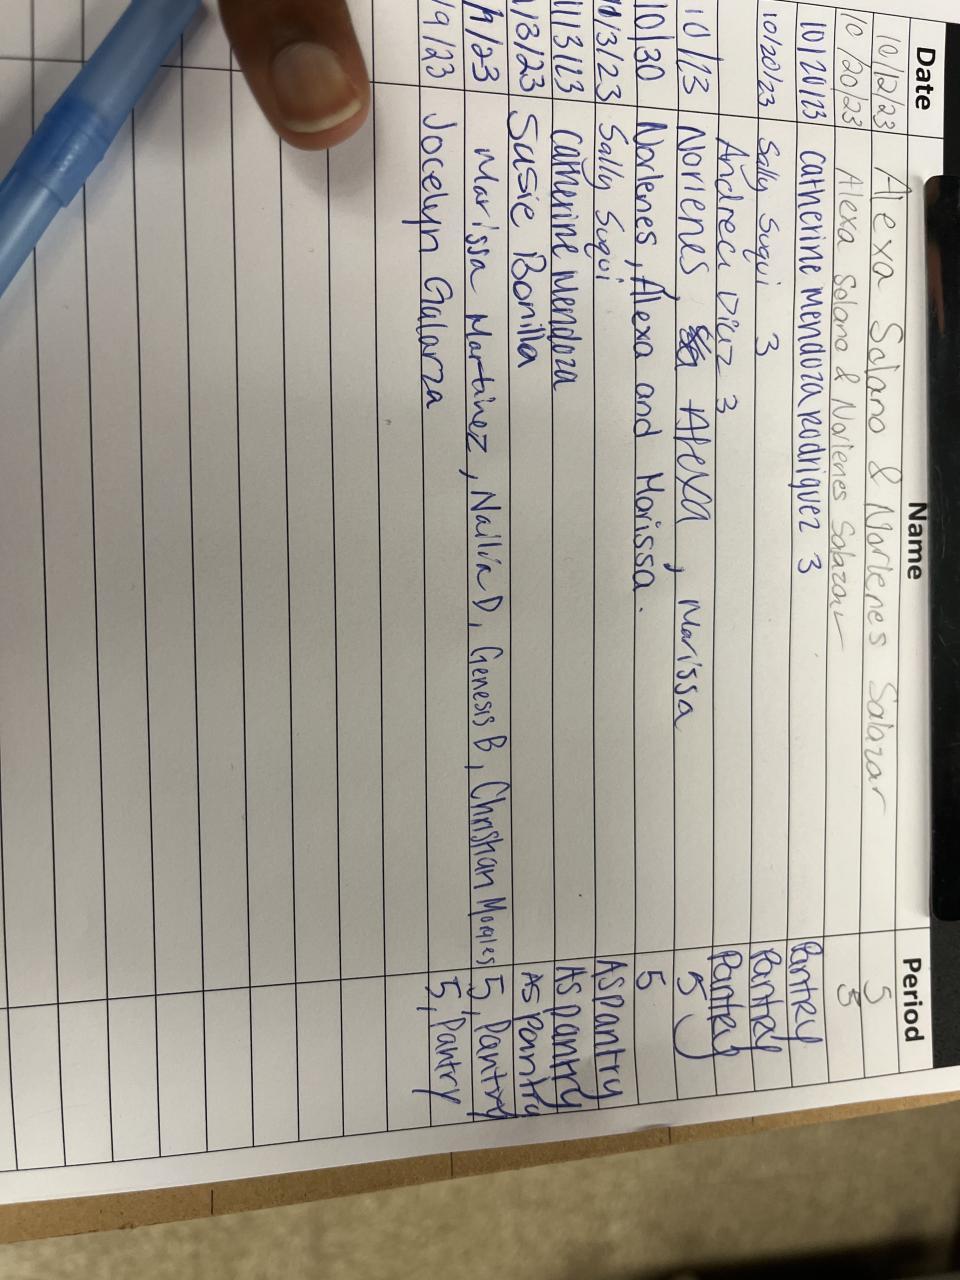 Date Name Period
10/12/23 Alexa Solano & Norlenes Salazar 5
10/20/23 Alexa Solano & Norlenes Salazar 5
10/20/23 Catherine Mendoza Rodriguez 3 Pantry
10/20/23 Sally Suqui 3 Pantry
Andrea Diaz 3 Pantry
10/23 Norlenes, Alexa, Marissa 5
10/30 Norlenes, Alexa and Marissa. 5
11/3/23 Sally Suqui AS Pantry
11/3/23 Catherine Mendoza AS Pantry
/3/23 Susie Bonilla AS Pantry
/23 Marissa Martinez, Nailia D, Genesis B, Christian Morales 5, Pantry
/9/23 Jocelyn Galarza 5, Pantry